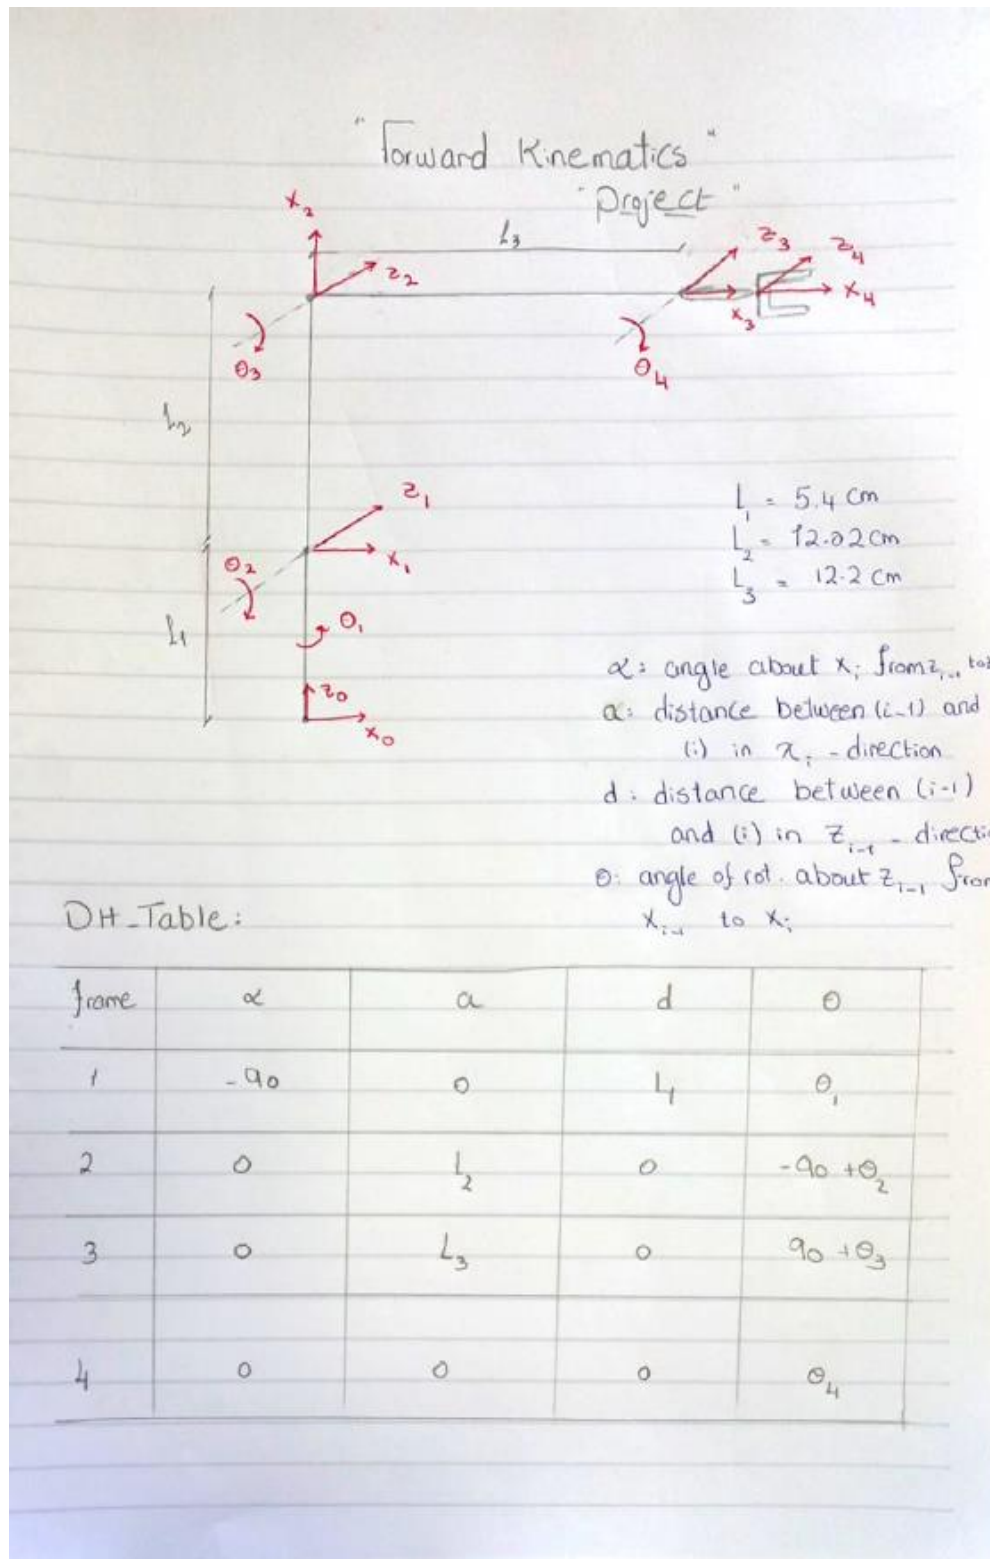 "Forward Kinematics"
"Project"
x₂
L₃
z₃
z₄
z₂
x₄
x₃
θ₃
θ₄
L₂
z₁
L₁ = 5.4 cm
x₁
L₂ = 12.02 cm
θ₂
L₃ = 12.2 cm
θ₁
L₁
α: angle about xᵢ from zᵢ₋₁ to
z₀
a: distance between (i-1) and
x₀
(i) in xᵢ - direction
d: distance between (i-1)
and (i) in zᵢ₋₁ - directi
θ: angle of rot. about zᵢ₋₁ from
DH-Table:
xᵢ₋₁ to xᵢ
frame α a d θ
1 -90 0 L₁ θ₁
2 0 L₂ 0 -90 + θ₂
3 0 L₃ 0 90 + θ₃
4 0 0 0 θ₄